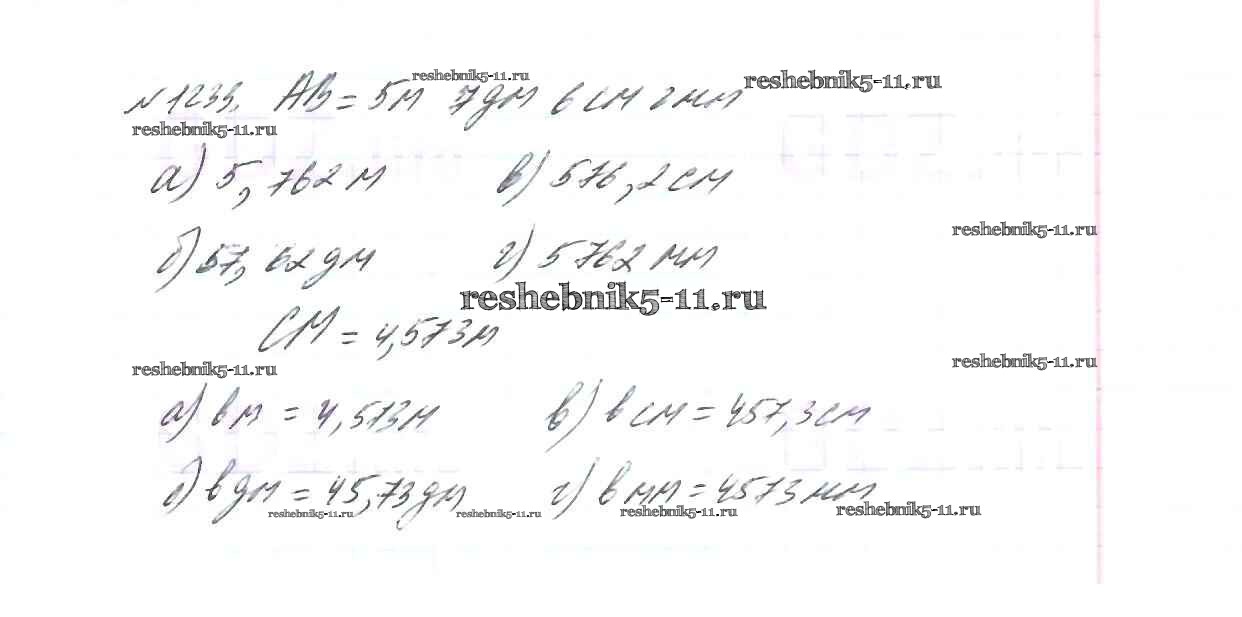 reshebnik5-11.ru
reshebnik5-11.ru
№1239. АВ = 5м 7дм 6см 2мм
reshebnik5-11.ru
а) 5,762м в) 576,2см
reshebnik5-11.ru
б) 57,62дм г) 5762мм
reshebnik5-11.ru
СМ = 4,573м
reshebnik5-11.ru
reshebnik5-11.ru
а) в м = 4,573м в) в см = 457,3см
б) в дм = 45,73дм г) в мм = 4573мм
reshebnik5-11.ru reshebnik5-11.ru reshebnik5-11.ru reshebnik5-11.ru